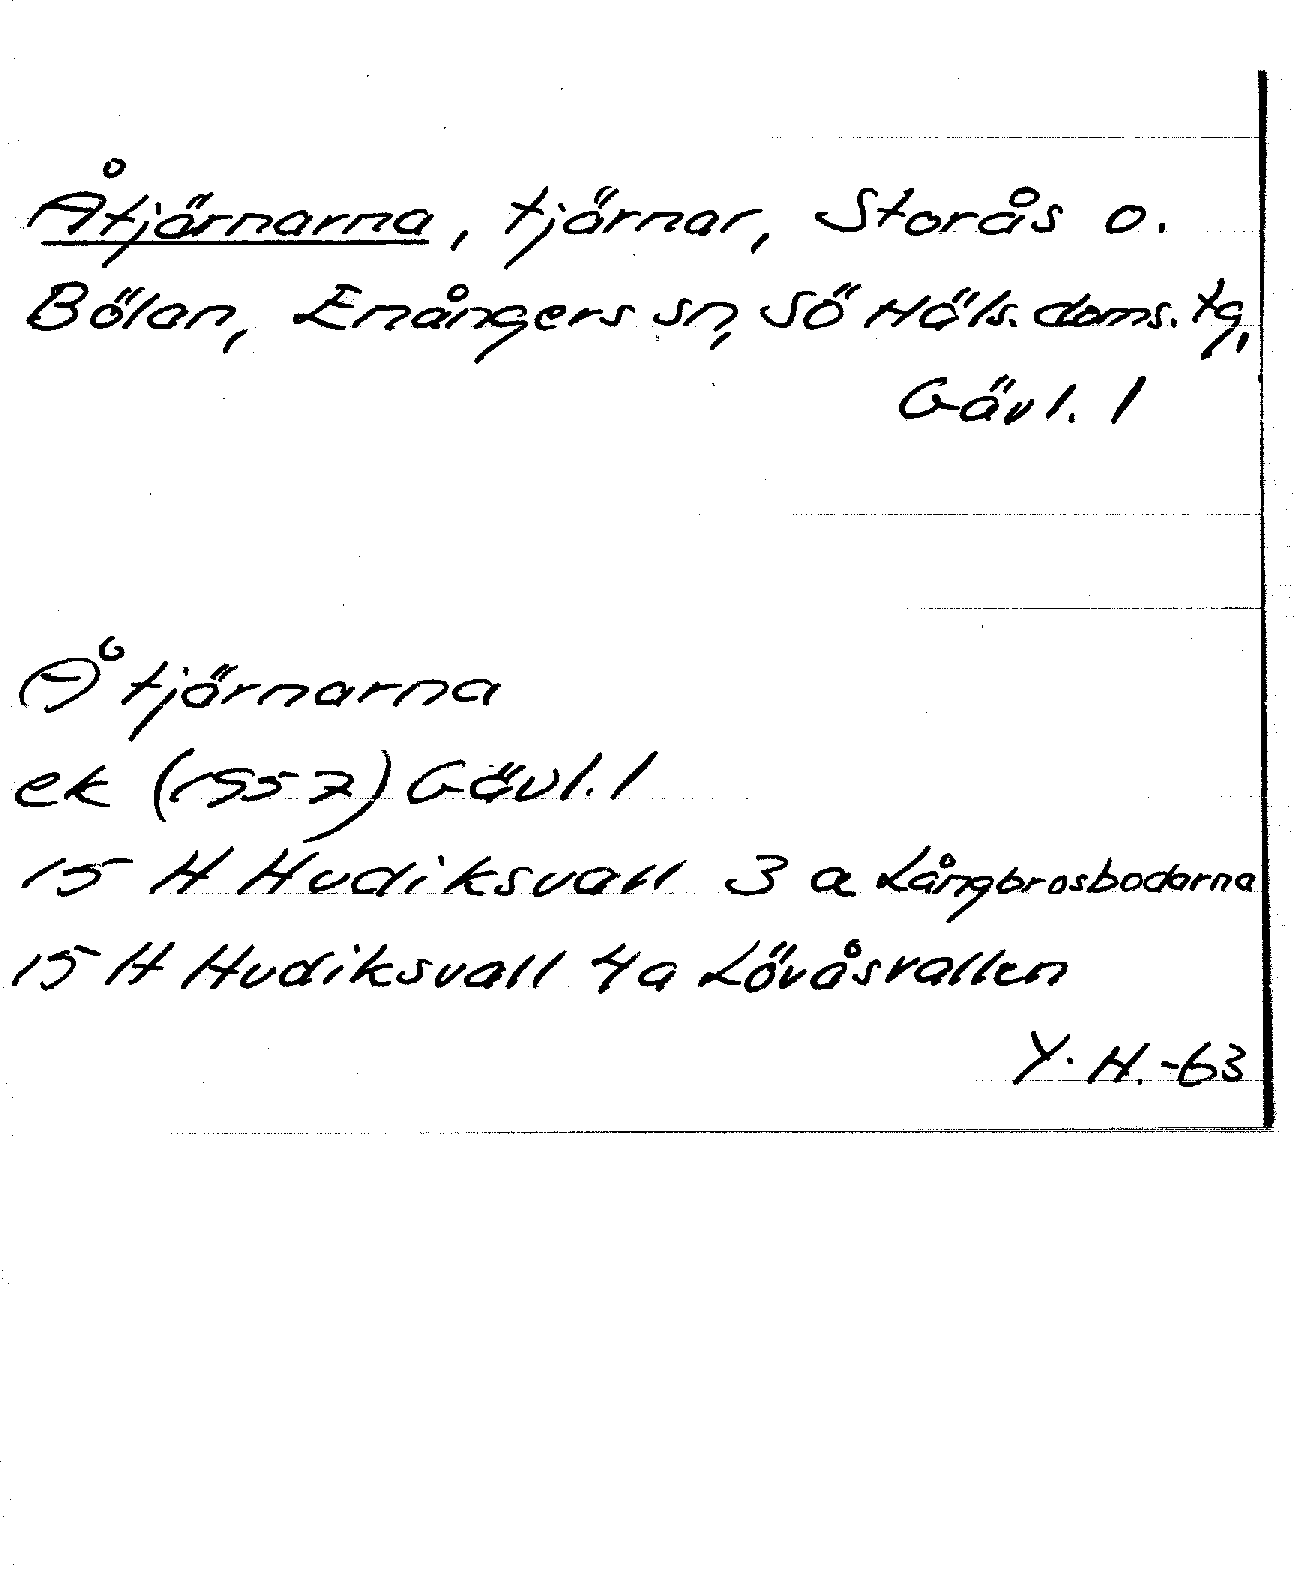 Åtjärnarna, tjärnar, Storås o.
Bölan, Enångers sn, Sö Häls. doms. tg,
Gävl. l
Åtjärnarna
ek (1957) Gävl. l
15 H Hudiksvall 3 a Långbrosbodarna
15 H Hudiksvall 4a Lövåsvallen
Y. H. -63